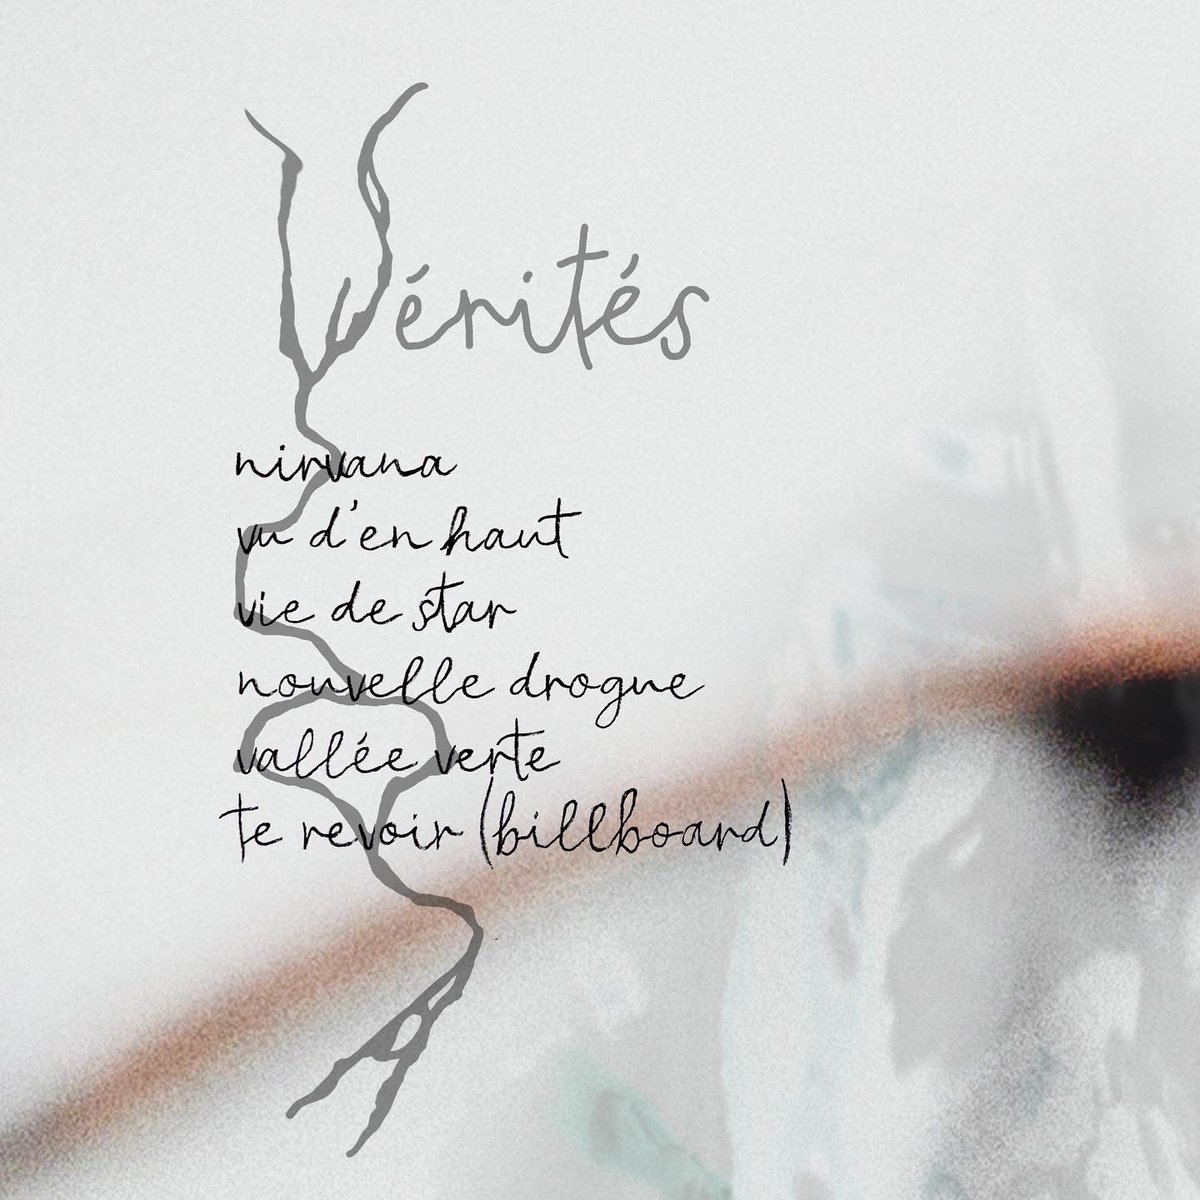 Vérités
nirvana
vu d'en haut
vie de star
nouvelle drogue
vallée verte
te revoir (billboard)